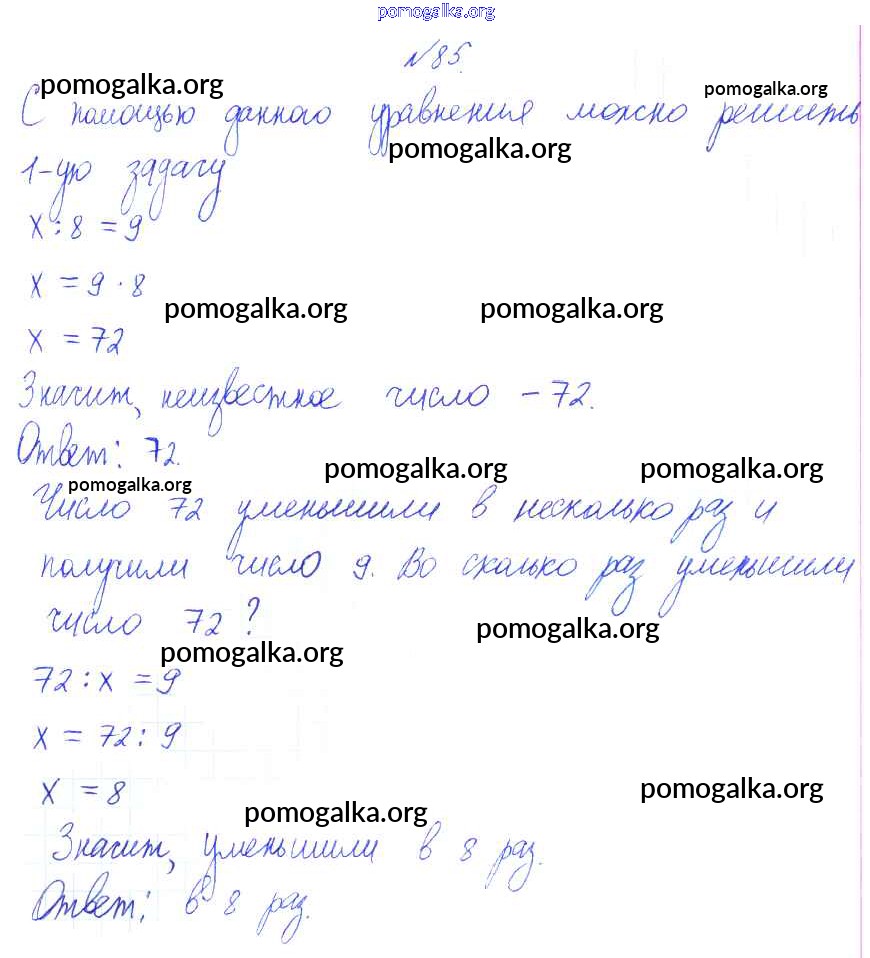 pomogalka.org
№85.
pomogalka.org pomogalka.org
С помощью данного уравнения можно решить
pomogalka.org
1-ую задачу
x : 8 = 9
x = 9 · 8
pomogalka.org pomogalka.org
x = 72
Значит, неизвестное число - 72.
Ответ: 72.
pomogalka.org pomogalka.org
pomogalka.org
Число 72 уменьшили в несколько раз и
получили число 9. Во сколько раз уменьшили
число 72?
pomogalka.org
pomogalka.org
72 : x = 9
x = 72 : 9
x = 8
pomogalka.org
pomogalka.org
Значит, уменьшили в 8 раз.
Ответ: в 8 раз.